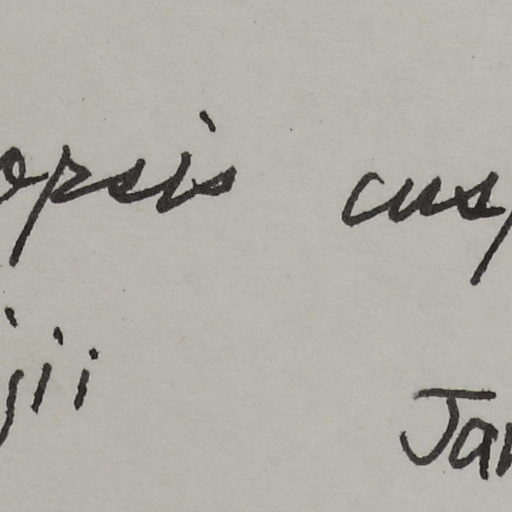 opsis cusp
jii Jan